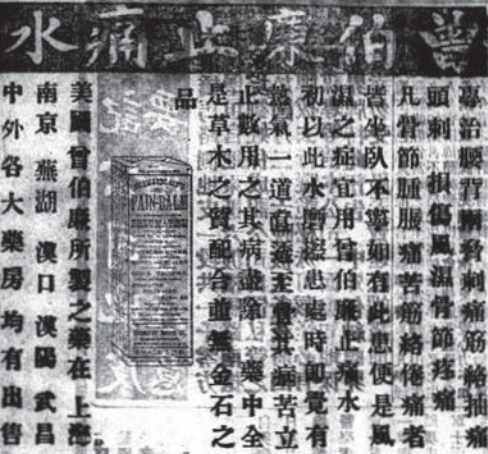 曾伯廉止痛水
專治腰背兩脅刺痛筋絡抽痛
頭刺 損傷風濕骨節疼痛
凡骨節腫脹痛苦筋絡倦痛者
皆坐臥不寧如有此患便是風
濕之症宜用曾伯廉止痛水
初以此水磨擦患處時即覺有
熱氣一道直透至骨其痛苦立
止數用之其病盡除 藥中全
是草木之質配合並無金石之
品
CHAMBERLAIN'S
PAIN-BALM
美國曾伯廉所製之藥在 上海
南京 蕪湖 漢口 漢陽 武昌
中外各大藥房均有出售